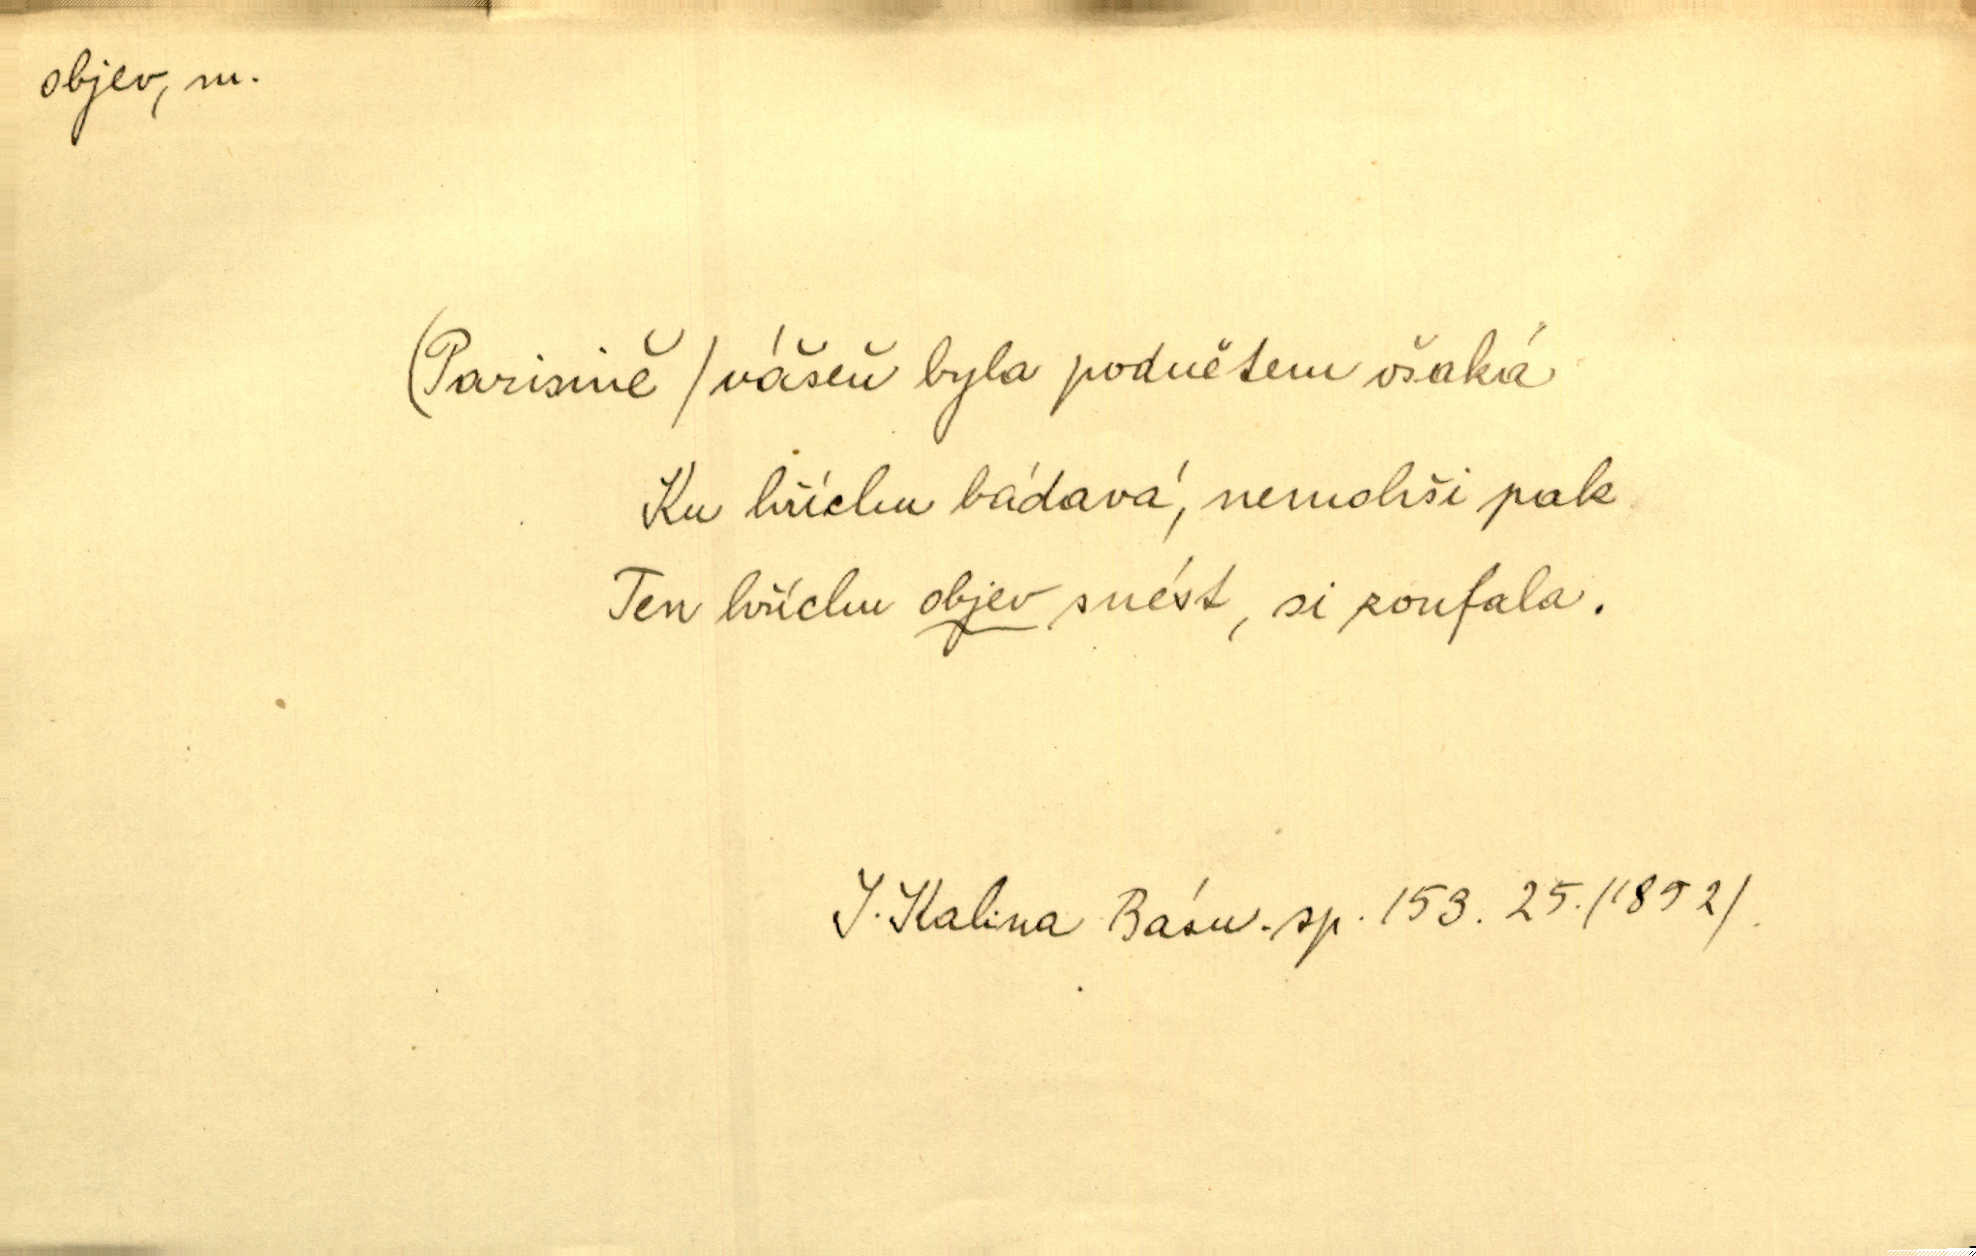 objev, m.
(Parisině) vášeň byla podnětem všaká
Ku hříchu bádavá, nemohši pak
Ten hříchu objev snést, si zoufala.
J. Kalina Básn. sp. 153. 25. (1892).